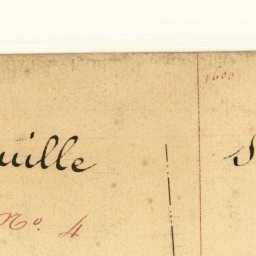 1600
uille
No. 4